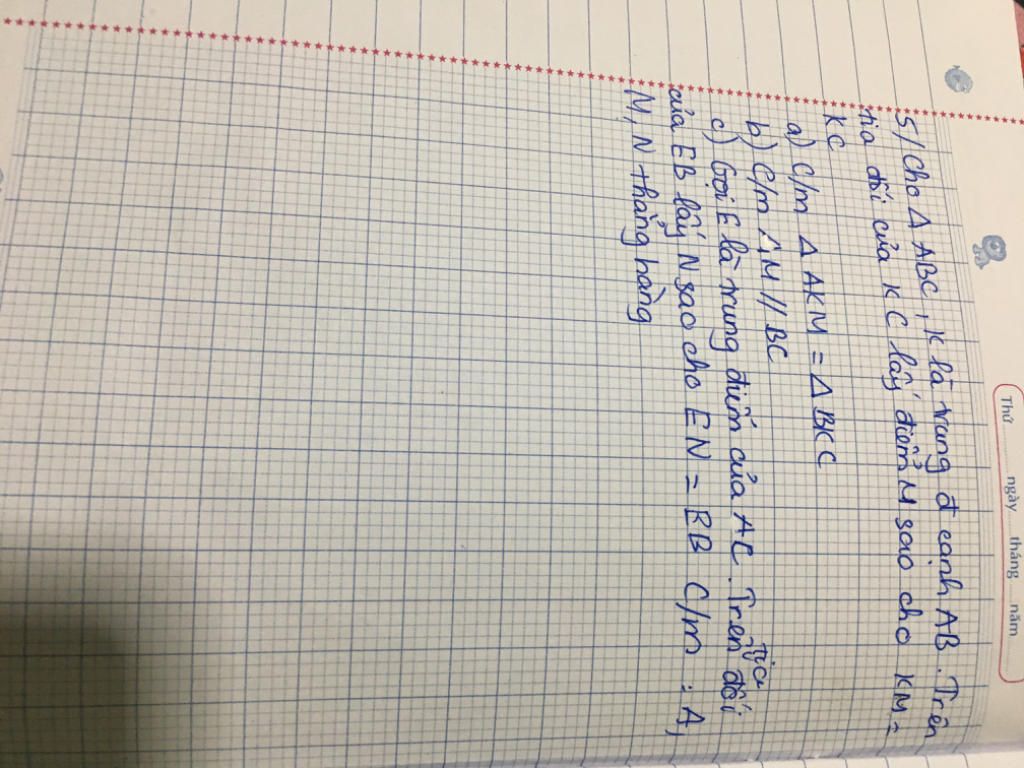 Thứ ...... ngày ...... tháng ...... năm
5/ Cho Δ ABC, K là trung đ cạnh AB. Trên
tia đối của KC lấy điểm M sao cho KM =
KC
a) C/m Δ AKM = Δ BKC
b) C/m AM // BC
c) Gọi E là trung điểm của AC. Trên tia đối
của EB lấy N sao cho EN = EB C/m : A,
M, N thẳng hàng